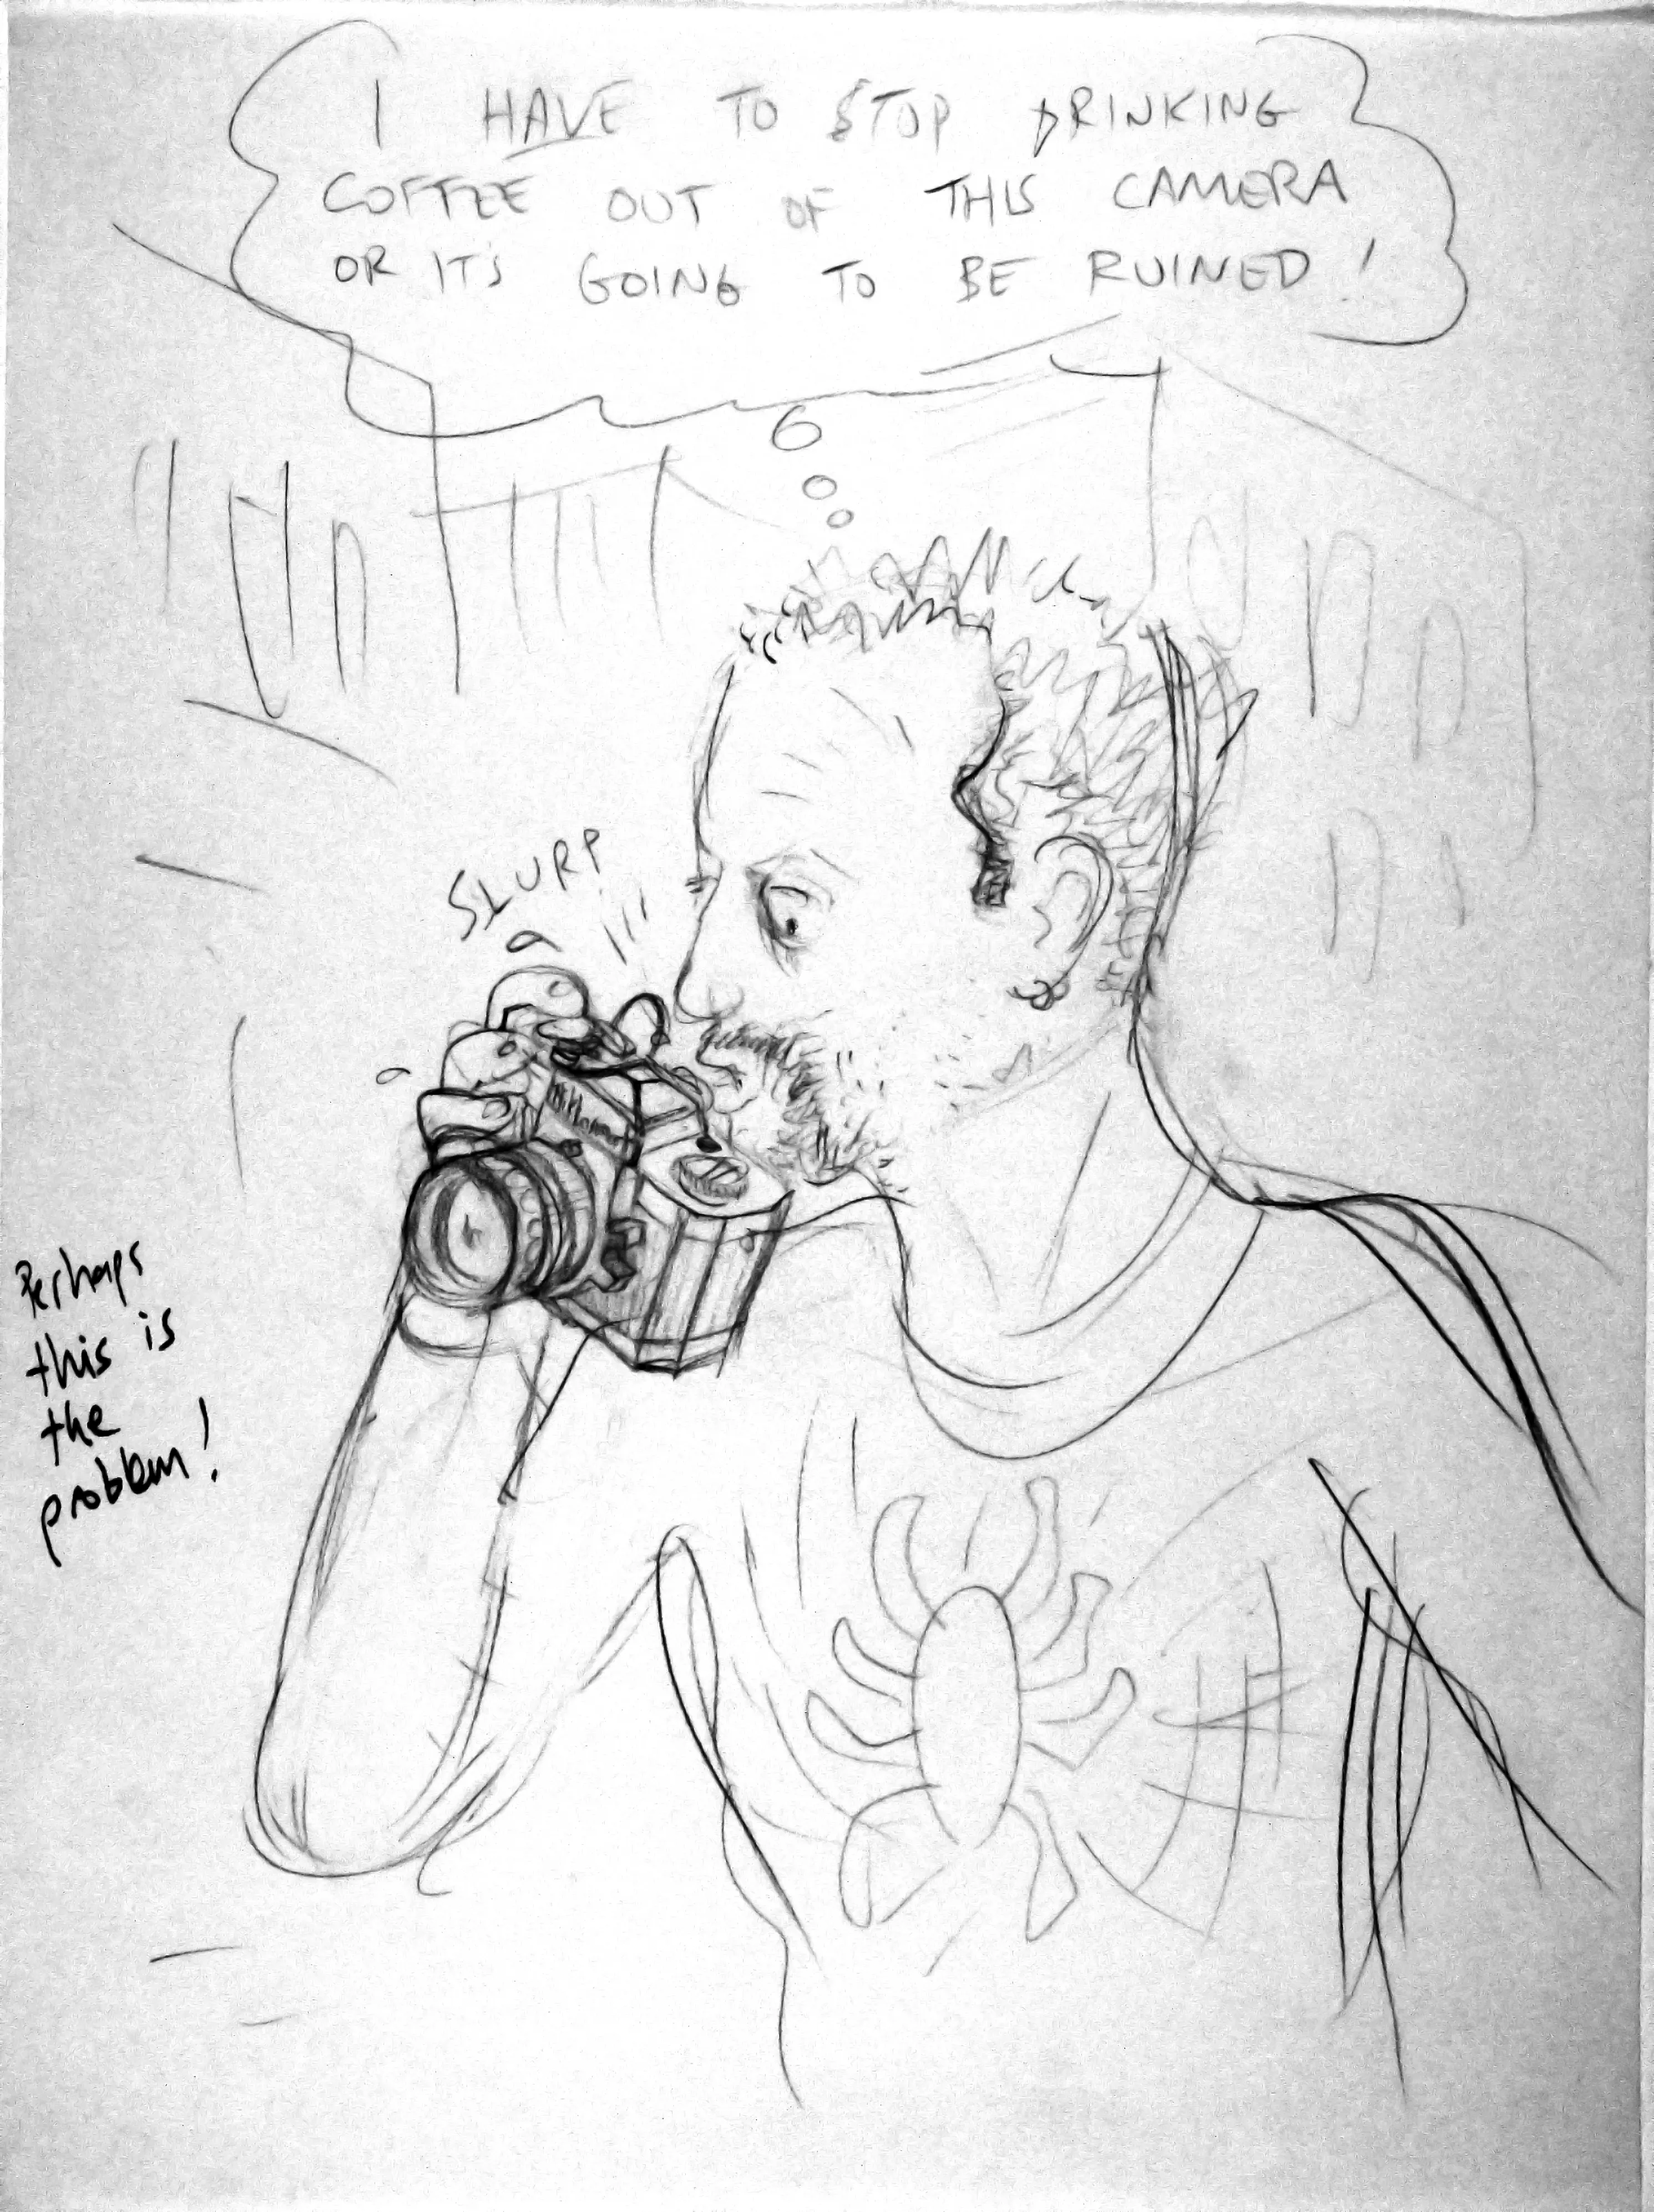 I HAVE TO STOP DRINKING
COFFEE OUT OF THIS CAMERA
OR IT'S GOING TO BE RUINED!
SLURP
Perhaps
this is
the
problem!